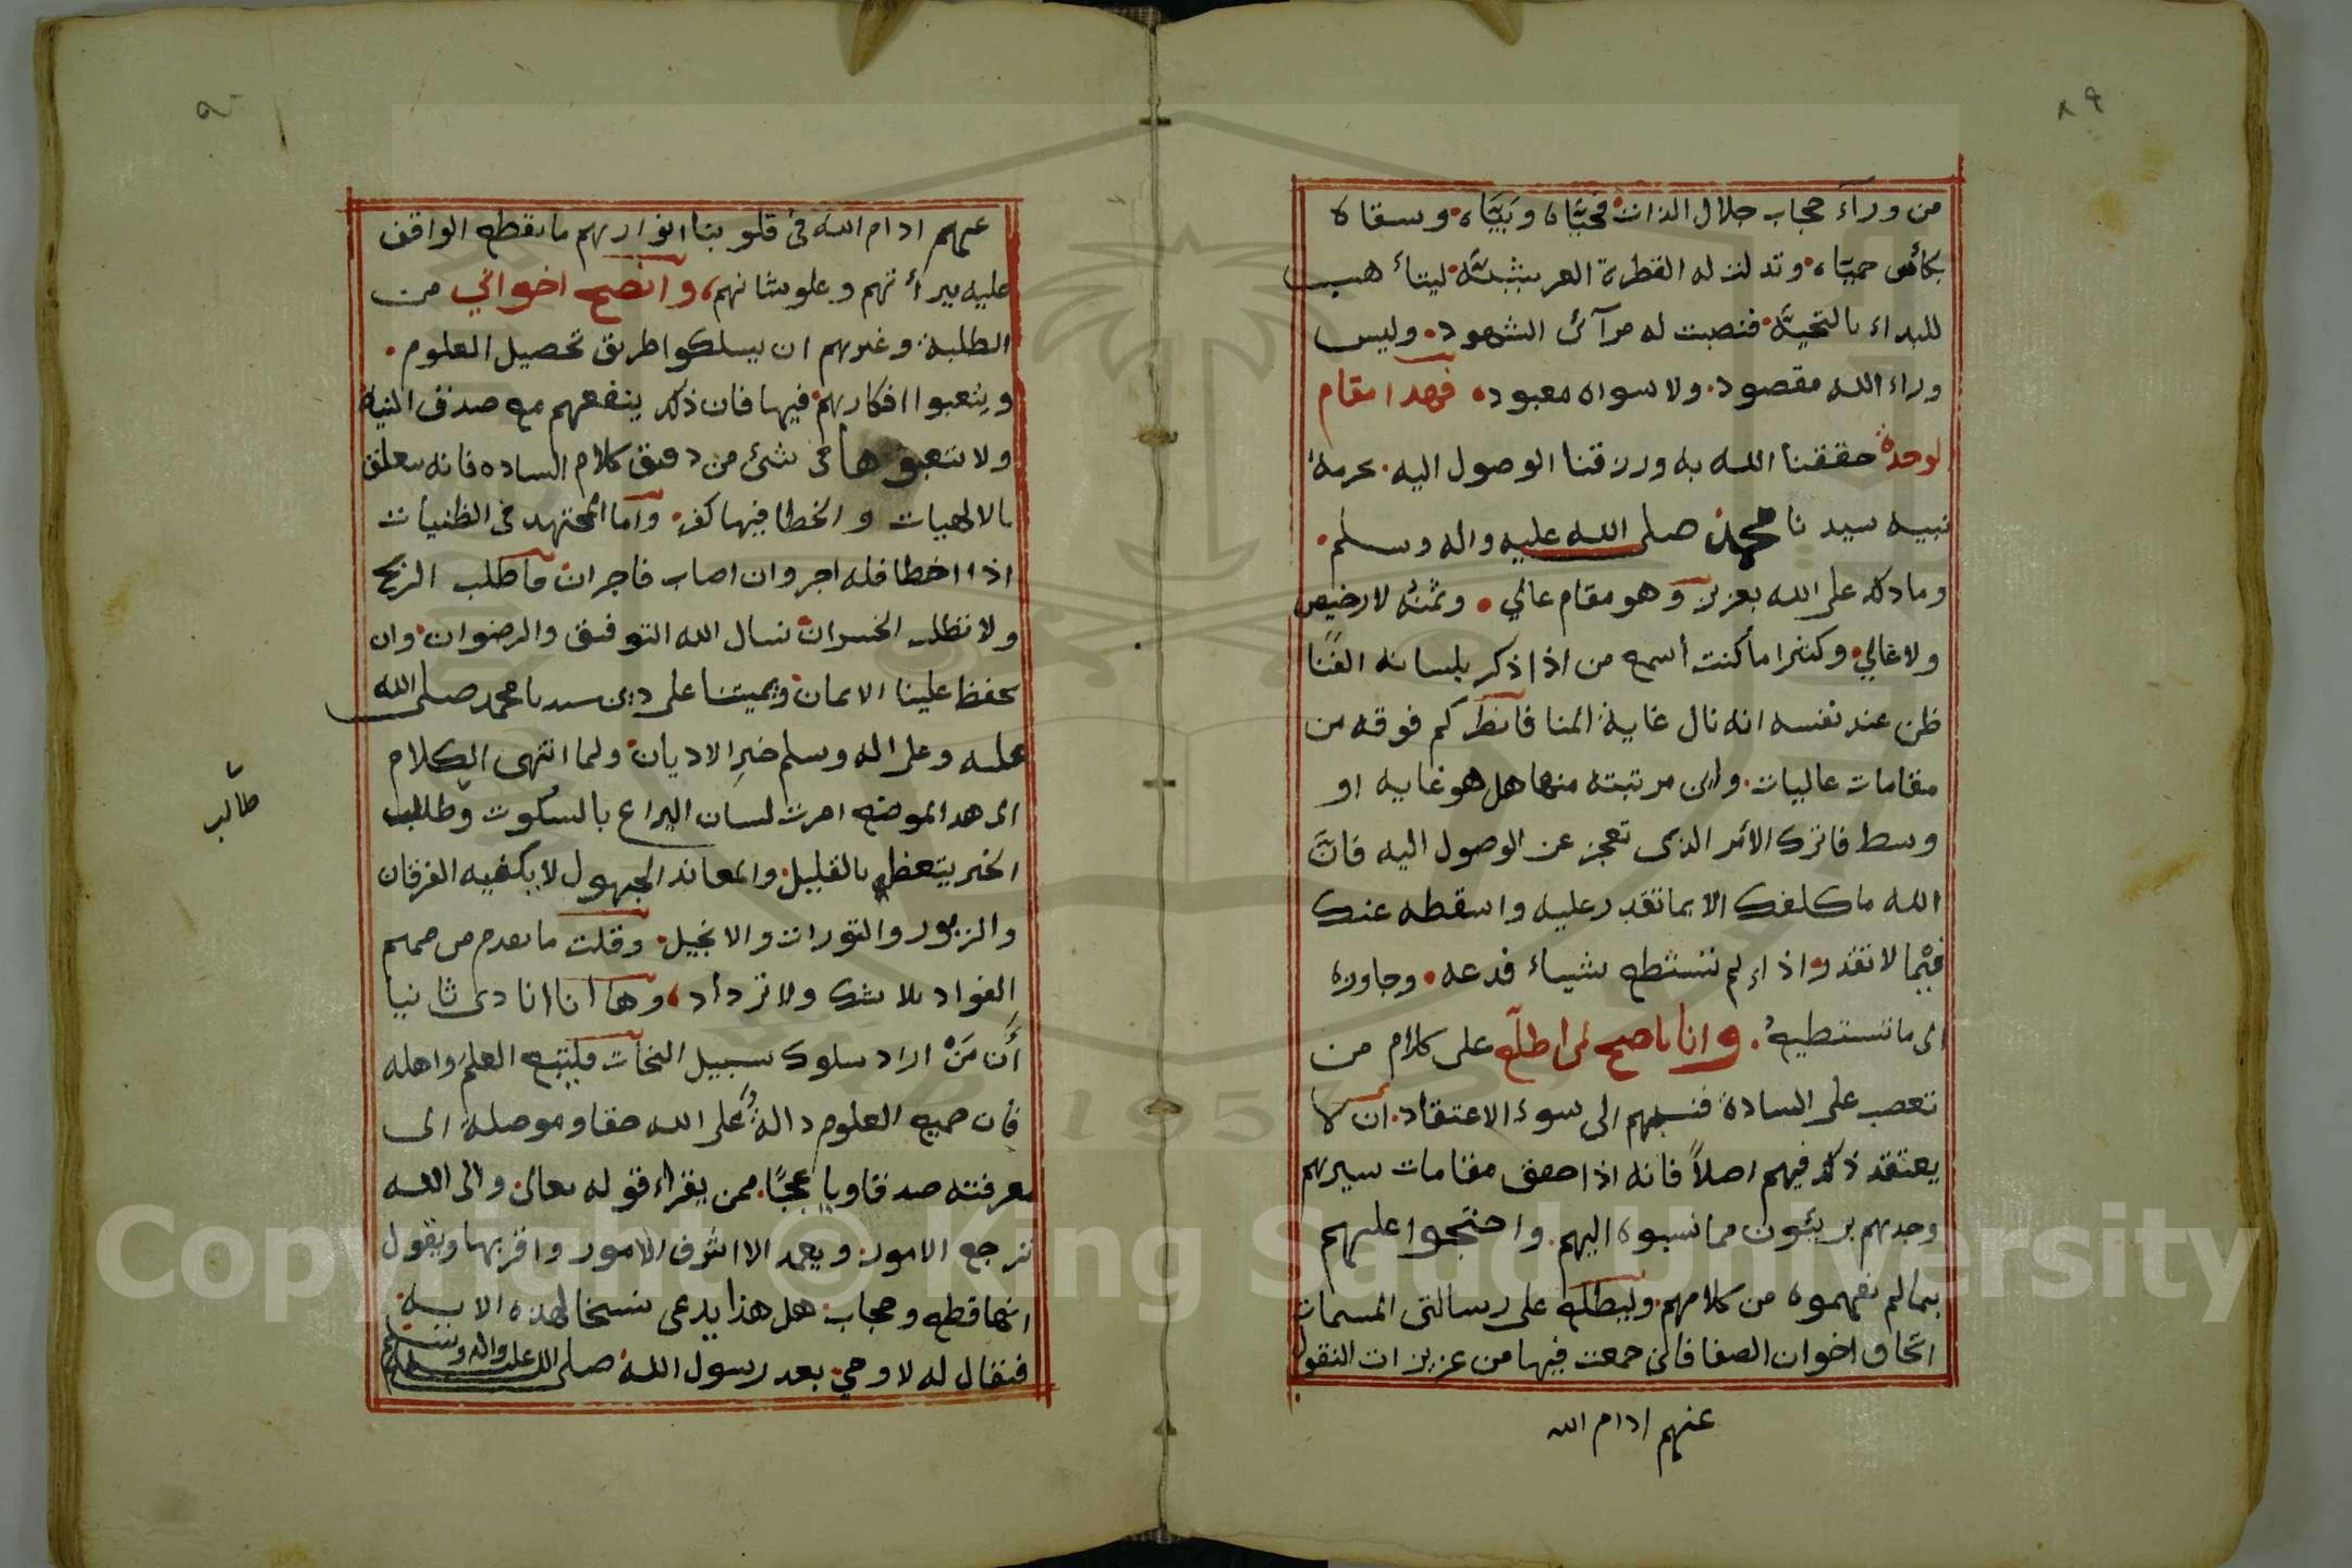 ٨٩
من ورآء حجاب جلال الذات فحيّاه وبَيّاه وسقاه
بكأس حميّاه وتدلت له القطرة العر ليتأهب
للبداء بالتحيّة فنصبت له مرآئ الشهود وليس
وراء الله مقصود ولا سواه معبود فهدا مقام
لوحدة حققنا الله به ورزقنا الوصول اليه بحرمة
نبيه سيدنا محمد صلى الله عليه واله وسلم
وما دلك على الله بعزيز وهو مقام عالي وثمنه لا رخيص
ولا غالي وكثيرا ما كنت أسمع من اذا ذكر بلسانه الفنا
ظن عند نفسه انه نال غاية المنا فانظر كم فوقه من
مقامات عاليات واين مرتبته منها هل هو غايه او
وسط فاترك الأمر الذي تعجز عن الوصول اليه فانّ
الله ما كلفك الا بما تقدر عليه واسقطه عنك
فيما لا تقدر واذا لم تستطع شياء فدعه وجاوزه
الى ما تستطيع وانا ناصح لمن اطلع على كلام من
تعصب على السادة فنسبهم الى سوء الاعتقاد ان لا
يعتقد ذلك فيهم اصلاً فانه اذا حقق مقامات سيرهم
وجدهم بريئون مما نسبوه اليهم واحتجوا عليهم
بما لم نفهموه من كلامهم وليطلع على رسالتي المسمات
اتحاف اخوان الصفا فاني جمعت فيها من عزيزات النقول
عنهم ادام الله
عنهم ادام الله في قلوبنا انوارهم ما يقطع الواقف
عليه ببرأتهم وعلو شانهم وانصح اخواني من
الطلبة وغيرهم ان يسلكوا طريق تحصيل العلوم
ويتعبوا افكارهم فيها فان ذلك ينفعهم مع صدق النية
ولا يتعبوها في شئ من دقيق كلام الساده فانه يتعلق
بالالهيات والخطا فيها كفر واما المجتهد في الظنيات
اذا اخطا فله اجر وان اصاب فاجران فاطلب الربح
ولا تطلب الخسران نسال الله التوفيق والرضوان وان
يحفظ علينا الايمان ويميتنا على دين سيدنا محمد صلى الله
عليه وعلى اله وسلم خير الاديان ولما انتهى الكلام
الى هدا الموضع امرت لسان اليراع بالسكوت وطالب
طالب
الخير يتعظ بالقليل والمعاند الجهول لا يكفيه الفرقان
والزبور والتورات والانجيل وقلت ما تقدم من صميم
الفواد بلا شك ولا تزداد وها انا انادي ثانيا
أن مَنْ اراد سلوك سبيل النجات فليتبع العلم واهله
فان جميع العلوم دالة على الله حقا وموصلة الى
معرفته صدقا ويا عجبًا ممن يقراء قوله تعالى والى الله
ترجع الامور ويعمد الا اشرف الامور واقربها ويقول
انها قطع وحجاب هل هذا يدعي نسخا لهذه الاية
فنقال له لا وحي بعد رسول الله صلى الله عليه واله وسلم
Copyright © King Saud University
195